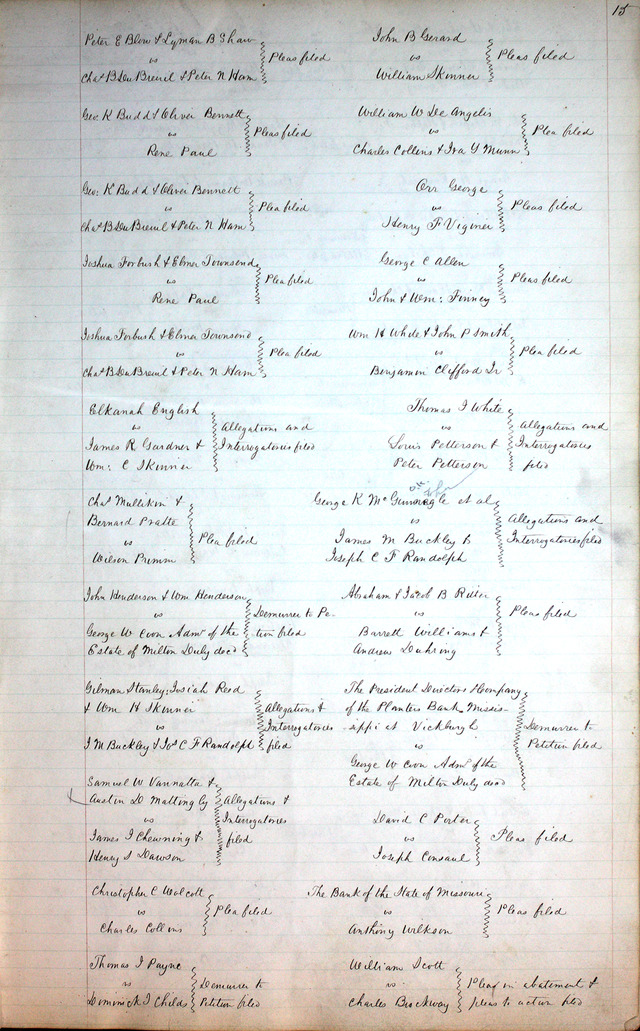 15
Peter E Blow & Lyman B Shaw
vs
Chas B Du Breuil & Peter N Ham
Pleas filed
Geo K Budd & Oliver Bennett
vs
Rene Paul
Pleas filed
Geo: K Budd & Oliver Bennett
vs
Chas B Du Breuil & Peter N Ham
Plea filed
Joshua Forbush & Elmer Townsend
vs
Rene Paul
Plea filed
Joshua Forbush & Elmer Townsend
vs
Chas B Du Breuil & Peter N Ham
Plea filed
Elkanah English
vs
James R Gardner &
Wm: C Skinner
Allegations and
Interrogatories filed
Chas Mullikin &
Bernard Pratte
vs
Wilson Primm
Plea filed
John Henderson & Wm Henderson
vs
George W Coon Admr of the
Estate of Milton Duly decd
Demurrer to Pe-
tition filed
Gilman Stanley, Josiah Reed
& Wm H Skinner
vs
J M Buckley & Jos C F Randolph
Allegations &
Interrogatories
filed
Samuel W Vannatta &
Austin D Mattingly
vs
James J Chewning &
Henry S Dawson
Allegations &
Interrogatories
filed
Christopher C Wolcott
vs
Charles Collins
Plea filed
Thomas J Payne
vs
Dominick J Childs
Demurrer to
Petition filed
John B Gerard
vs
William Skinner
Pleas filed
William W De Angelis
vs
Charles Collins & Ira Y Munn
Plea filed
Orr George
vs
Henry F
Pleas filed
George C Allen
vs
John & Wm: Finney
Pleas filed
Wm H White & John P Smith
vs
Benjamin Clifford Jr
Plea filed
Thomas J White
vs
Louis Petterson &
Peter Petterson
Allegations and
Interrogatories
filed
George K et al
vs
James M Buckley &
Joseph C F Randolph
Allegations and
Interrogatories filed
Abraham & Jacob B Ritter
vs
Barrett Williams &
Andrew Duhring
Pleas filed
The President Directors & Company
of the Planters Bank Missis-
sippi at Vicksburgh
vs
George W Coon Admr of the
Estate of Milton Duly decd
Demurrer to
Petition filed
David C Porter
vs
Joseph Consaul
Pleas filed
The Bank of the State of Missouri
vs
Anthony Wilkson
Pleas filed
William Scott
vs
Charles Brockway
Plea in abatement &
pleas to action filed